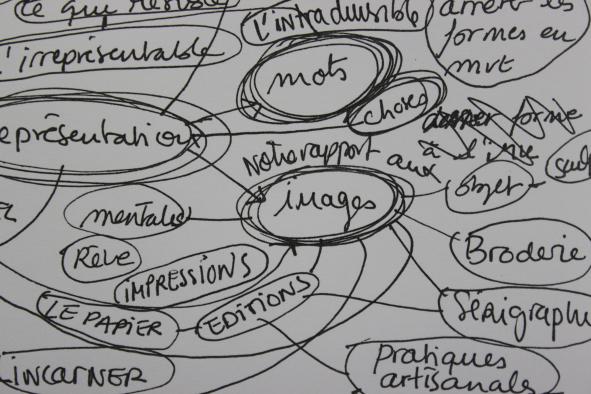 ce qui résiste
L'intraduisible
arrêter les
formes en
mvt
l'irreprésentable
mots
choses
eprésentation
Notre rapport aux
images
objet
mentales
Rêve
IMPRESSIONS
Broderie
LE PAPIER
EDITIONS
Sérigraphi
INCARNER
pratiques
artisanales